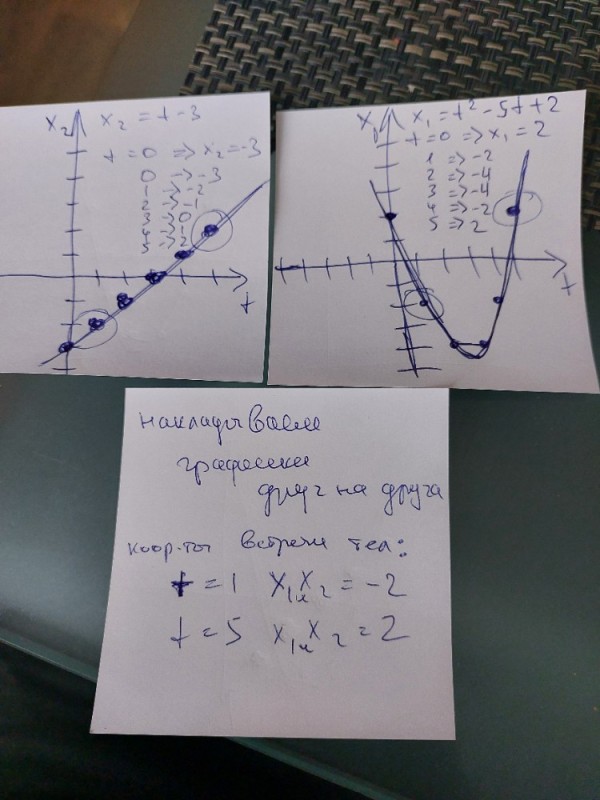 x₂
x₂ = t - 3
t = 0 => x₂ = -3
0 -> -3
1 -> -2
2 -> -1
3 -> 0
4 -> 1
5 -> 2
t
x₁
x₁ = t² - 5t + 2
t = 0 => x₁ = 2
1 => -2
2 => -4
3 => -4
4 => -2
5 => 2
t
накладываем
графики
друг на друга
коор-ты встречи тел:
t = 1 x₁ и x₂ = -2
t = 5 x₁ и x₂ = 2